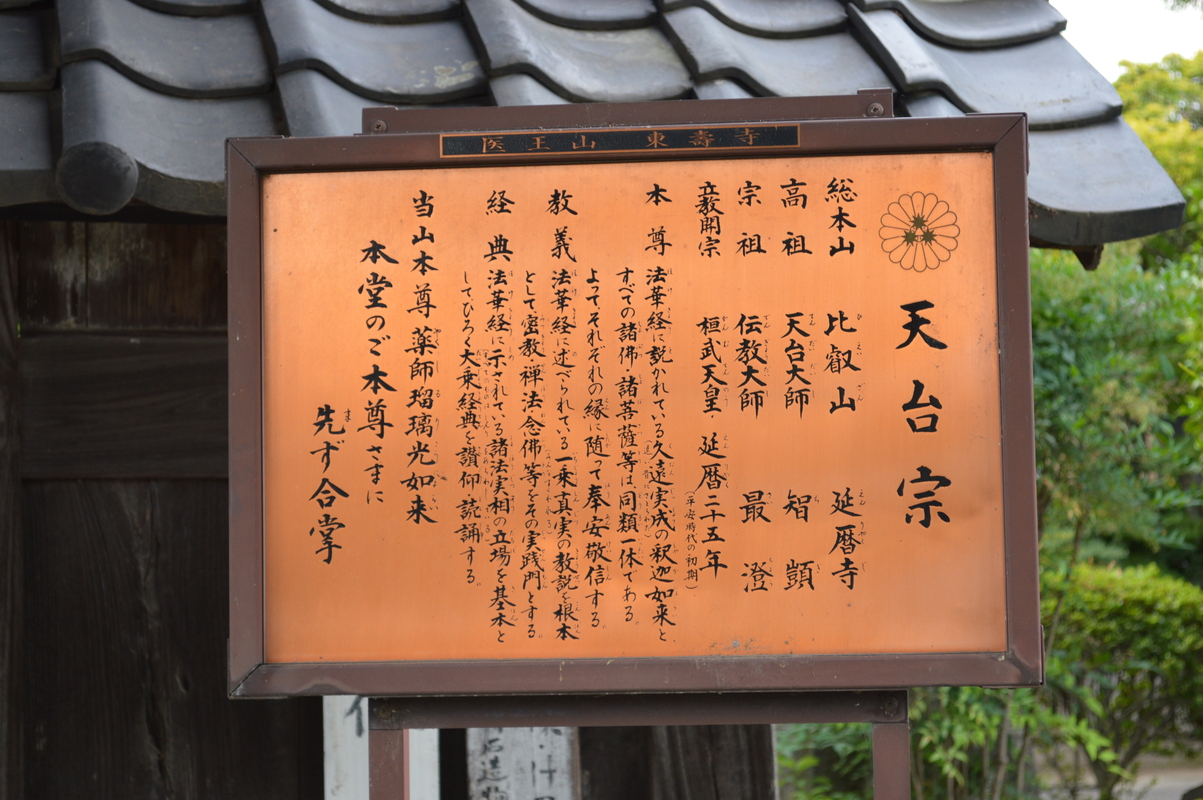 医王山 東壽寺
天台宗
総本山 比叡山 延暦寺
高祖 天台大師 智顗
宗祖 伝教大師 最澄
立教開宗 桓武天皇 延暦二十五年
(平安時代の初期)
本尊 法華経に説かれている久遠実成の釈迦如来と
すべての諸佛・諸菩薩等は同類一体である
よってそれぞれの縁に随って奉安敬信する
教義 法華経に述べられている一乗真実の教説を根本
として密教・禅法・念佛等をその実践門とする
経典 法華経に示されている諸法実相の立場を基本と
してひろく大乗経典を讃仰・読誦する。
当山本尊 薬師瑠璃光如来
本堂のご本尊さまに
先ず合掌